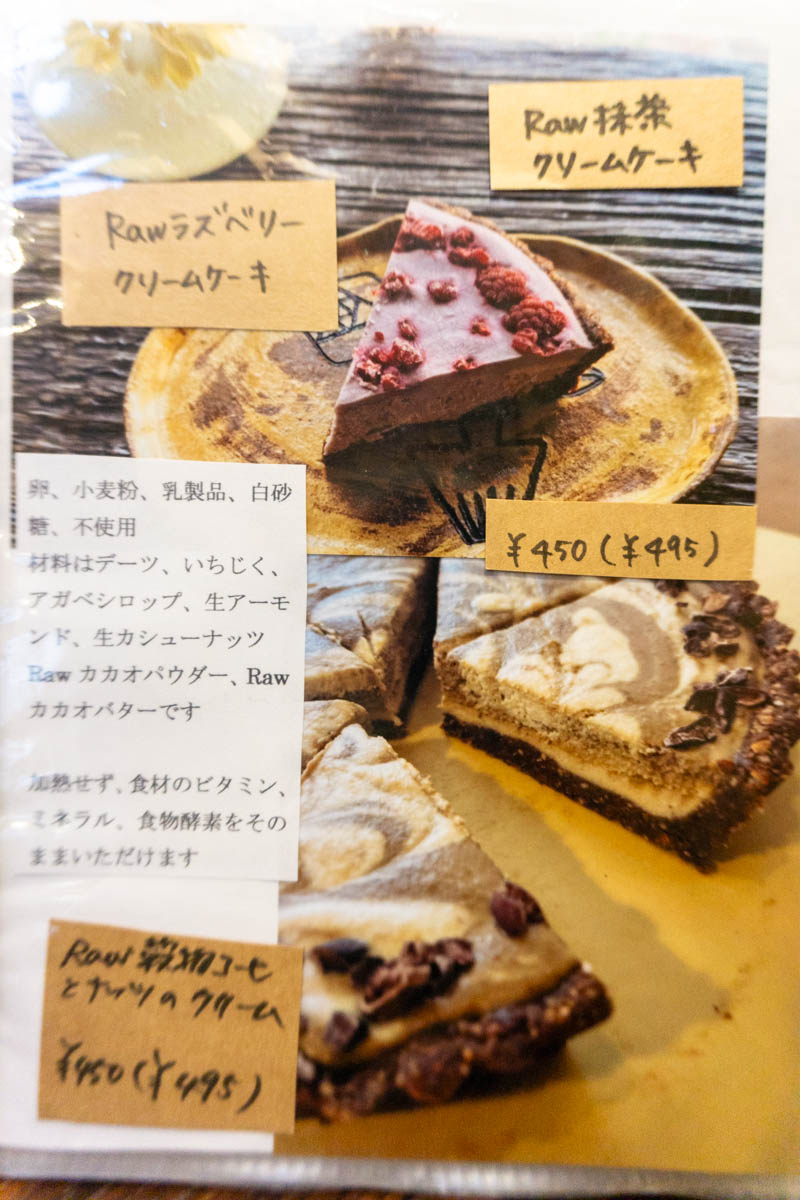 Raw抹茶
クリームケーキ
Rawラズベリー
クリームケーキ
¥450(¥495)
卵、小麦粉、乳製品、白砂
糖、不使用
材料はデーツ、いちじく、
アガベシロップ、生アーモ
ンド、生カシューナッツ
Raw カカオパウダー、Raw
カカオバターです
加熱せず、食材のビタミン、
ミネラル、食物酵素をその
ままいただけます
Raw穀物コーヒ
とナッツのクリーム
¥450(¥495)